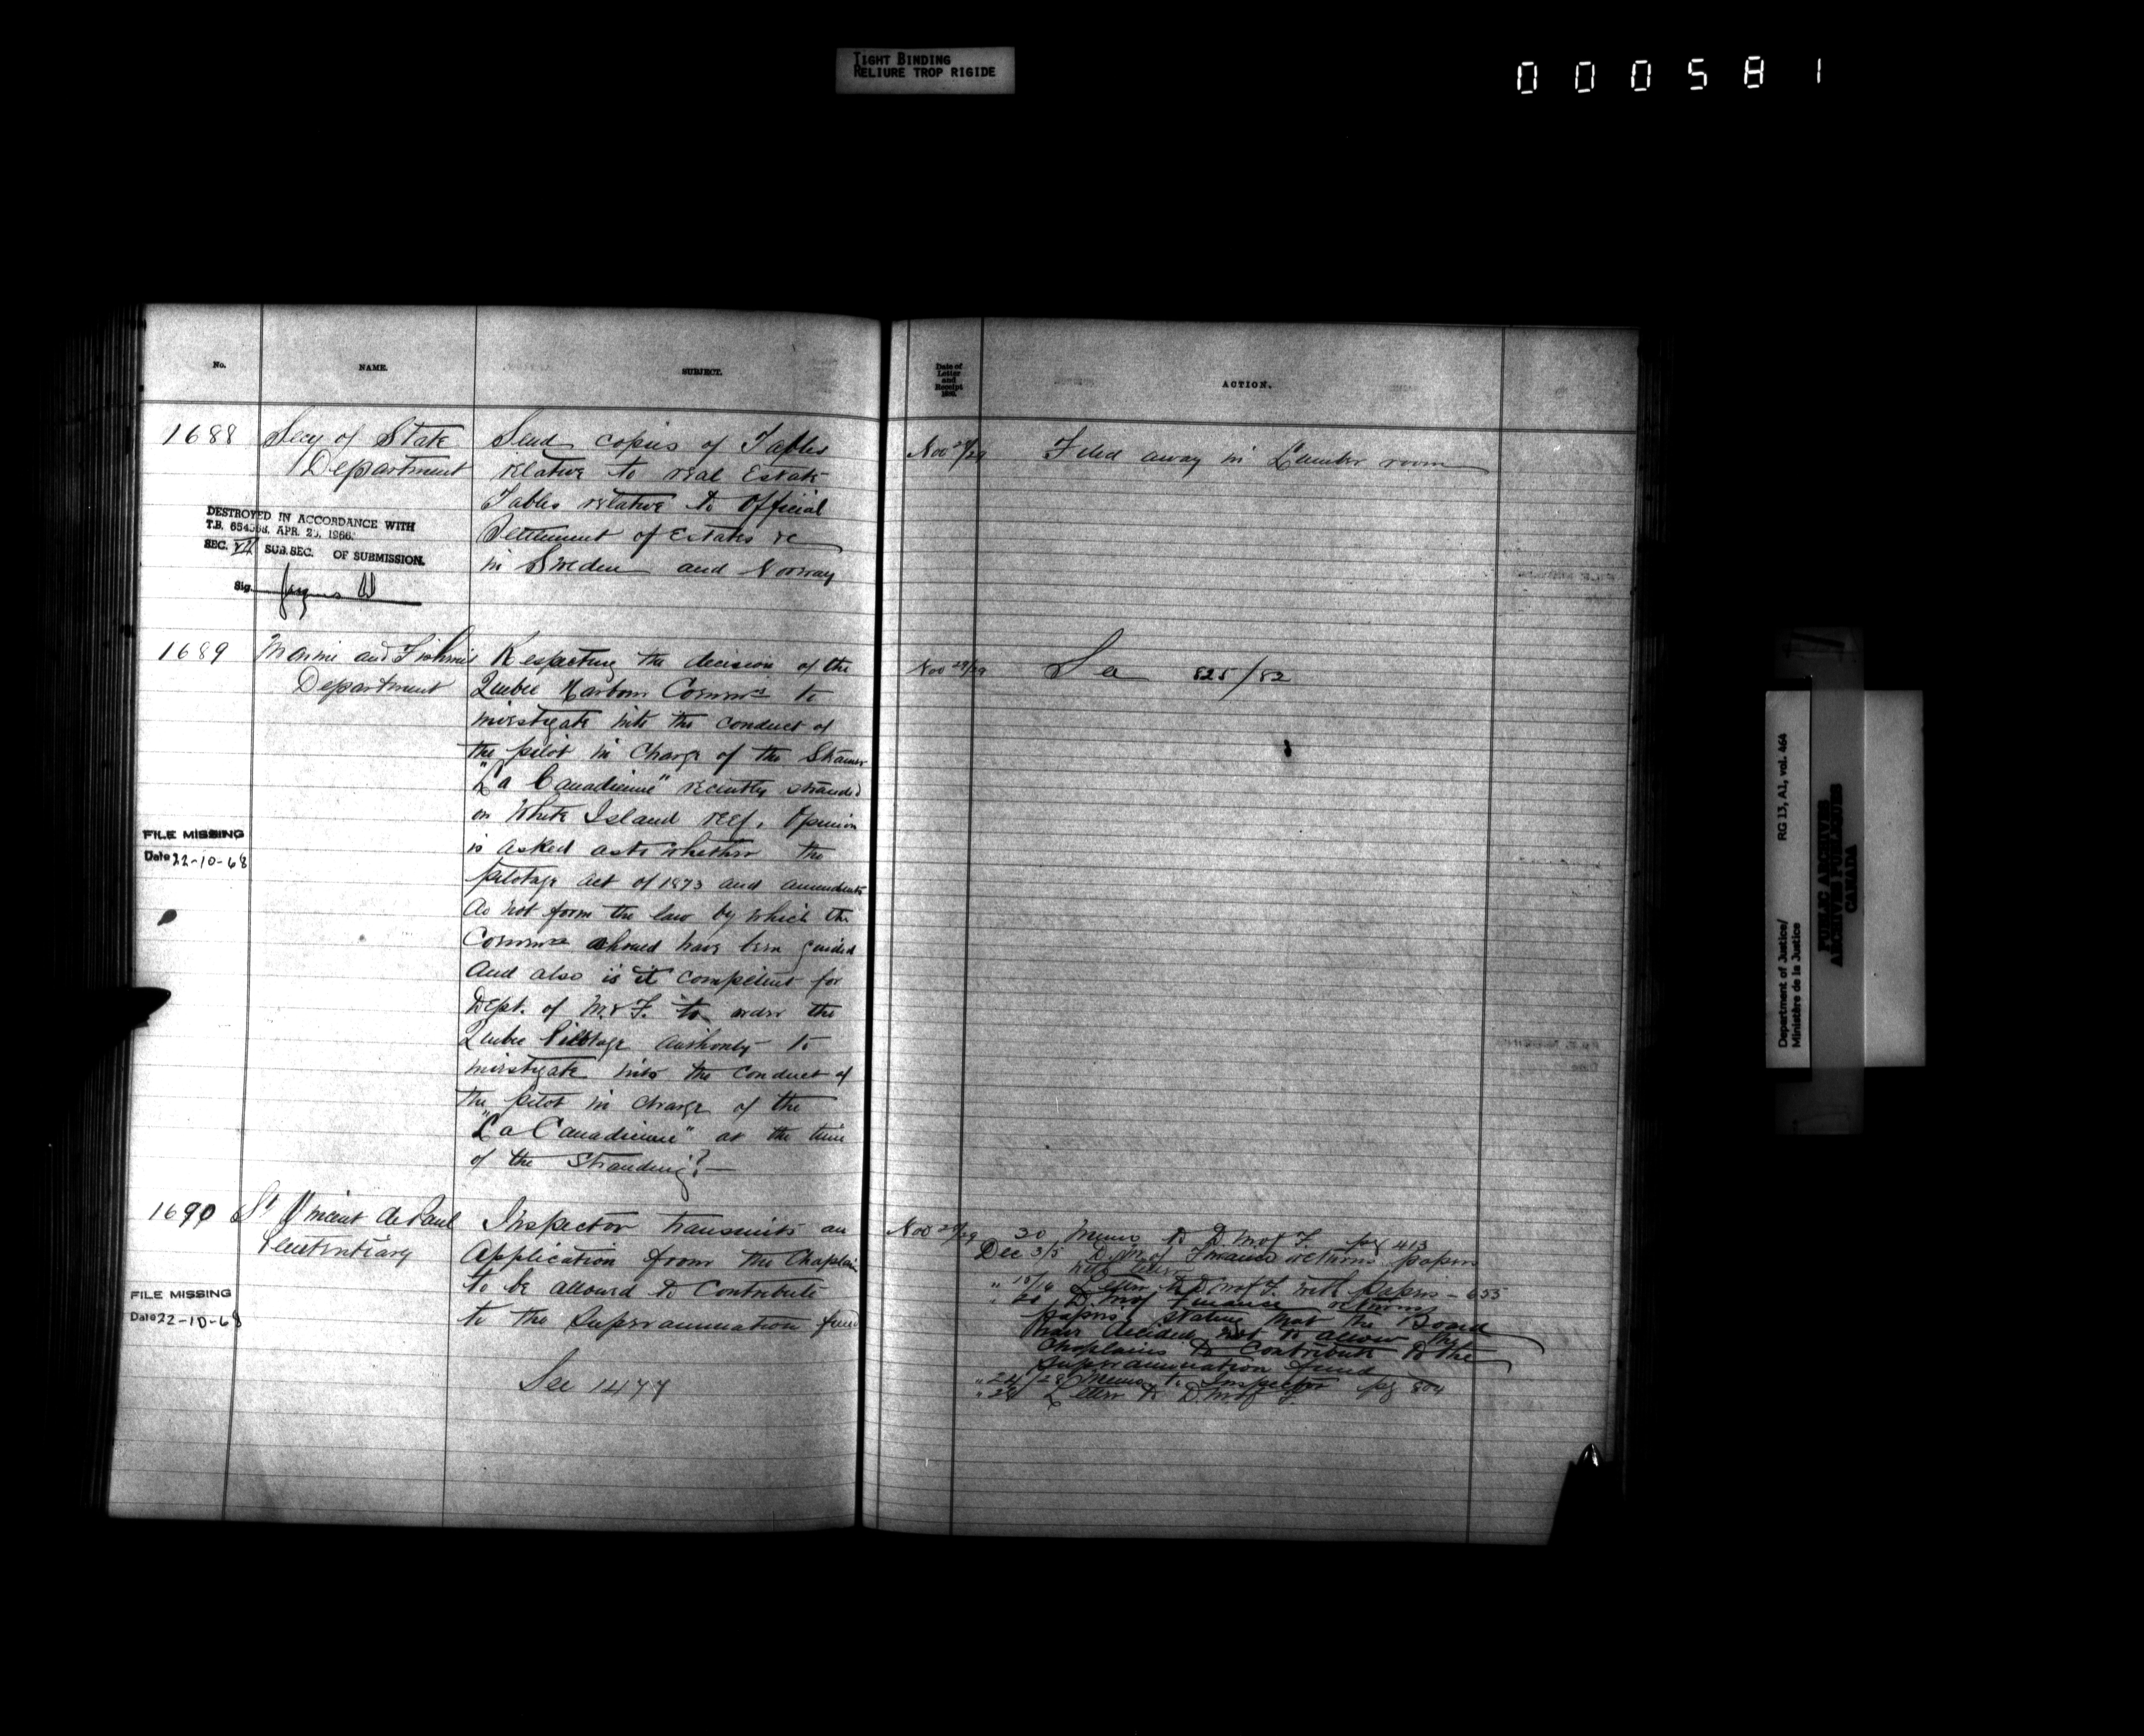 TIGHT BINDING
RELIURE TROP RIGIDE
000581
No.
NAME.
SUBJECT.
Date of
Letter
and
Receipt
ACTION.
1688
Secy of State
Department
Send copies of Tables
relative to real Estate
Tables relative to Official
Settlement of Estates &c
in Sweden and Norway
Nov 28/29
Filed away in Lumber room
DESTROYED IN ACCORDANCE WITH
T.B. APR. 1966.
SEC. VII SUB.SEC. OF SUBMISSION.
Sig.
1689
Marine and Fisheries
Department
Respecting the decision of the
Quebec Harbour Commrs to
investigate into the conduct of
the pilot in charge of the Steamer
"La Canadienne" recently stranded
on White Island reef. Opinion
is asked as to whether the
pilotage act of 1873 and amendments
do not form the law by which the
Commrs should have been guided
And also is it competent for
Dept. of M. & F. to order the
Quebec Pilotage authority to
investigate into the conduct of
the pilot in charge of the
"La Canadienne" at the time
of the stranding?
Nov 29/29
See 825/82
FILE MISSING
Date 22-10-68
1690
St Vincent de Paul
Penitentiary
Inspector transmits an
application from the Chaplain
to be allowed to contribute
to the Superannuation fund
See 1477
FILE MISSING
Date 22-10-68
Nov 29/29
30 Memo to D.M. of F. pg 413
Dec 3/5 D.M. of Finance returns papers
with letter
" 15/16 Letter to D.M. of F. with papers - 655
" 20 D.M. of Finance returns
papers, stating that the Board
have decided not to allow the
Chaplains to contribute to the
Superannuation fund
" 24/28 Memo to Inspector pg 804
" 28 Letter to D.M. of F.
Department of Justice/
Ministère de la Justice
RG 13, A1, vol. 464
PUBLIC ARCHIVES
ARCHIVES PUBLIQUES
CANADA